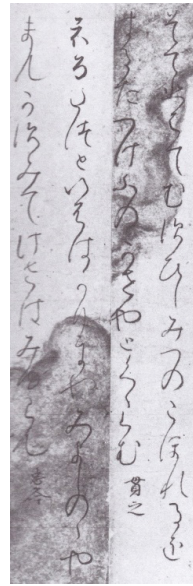 そてひちてむすひしみつのこほれるを
はるたつけふのかせやとくらむ 貫之
はるたつといふはかりにやみよしのゝや
まもかすみてけさはみゆらん 忠岑